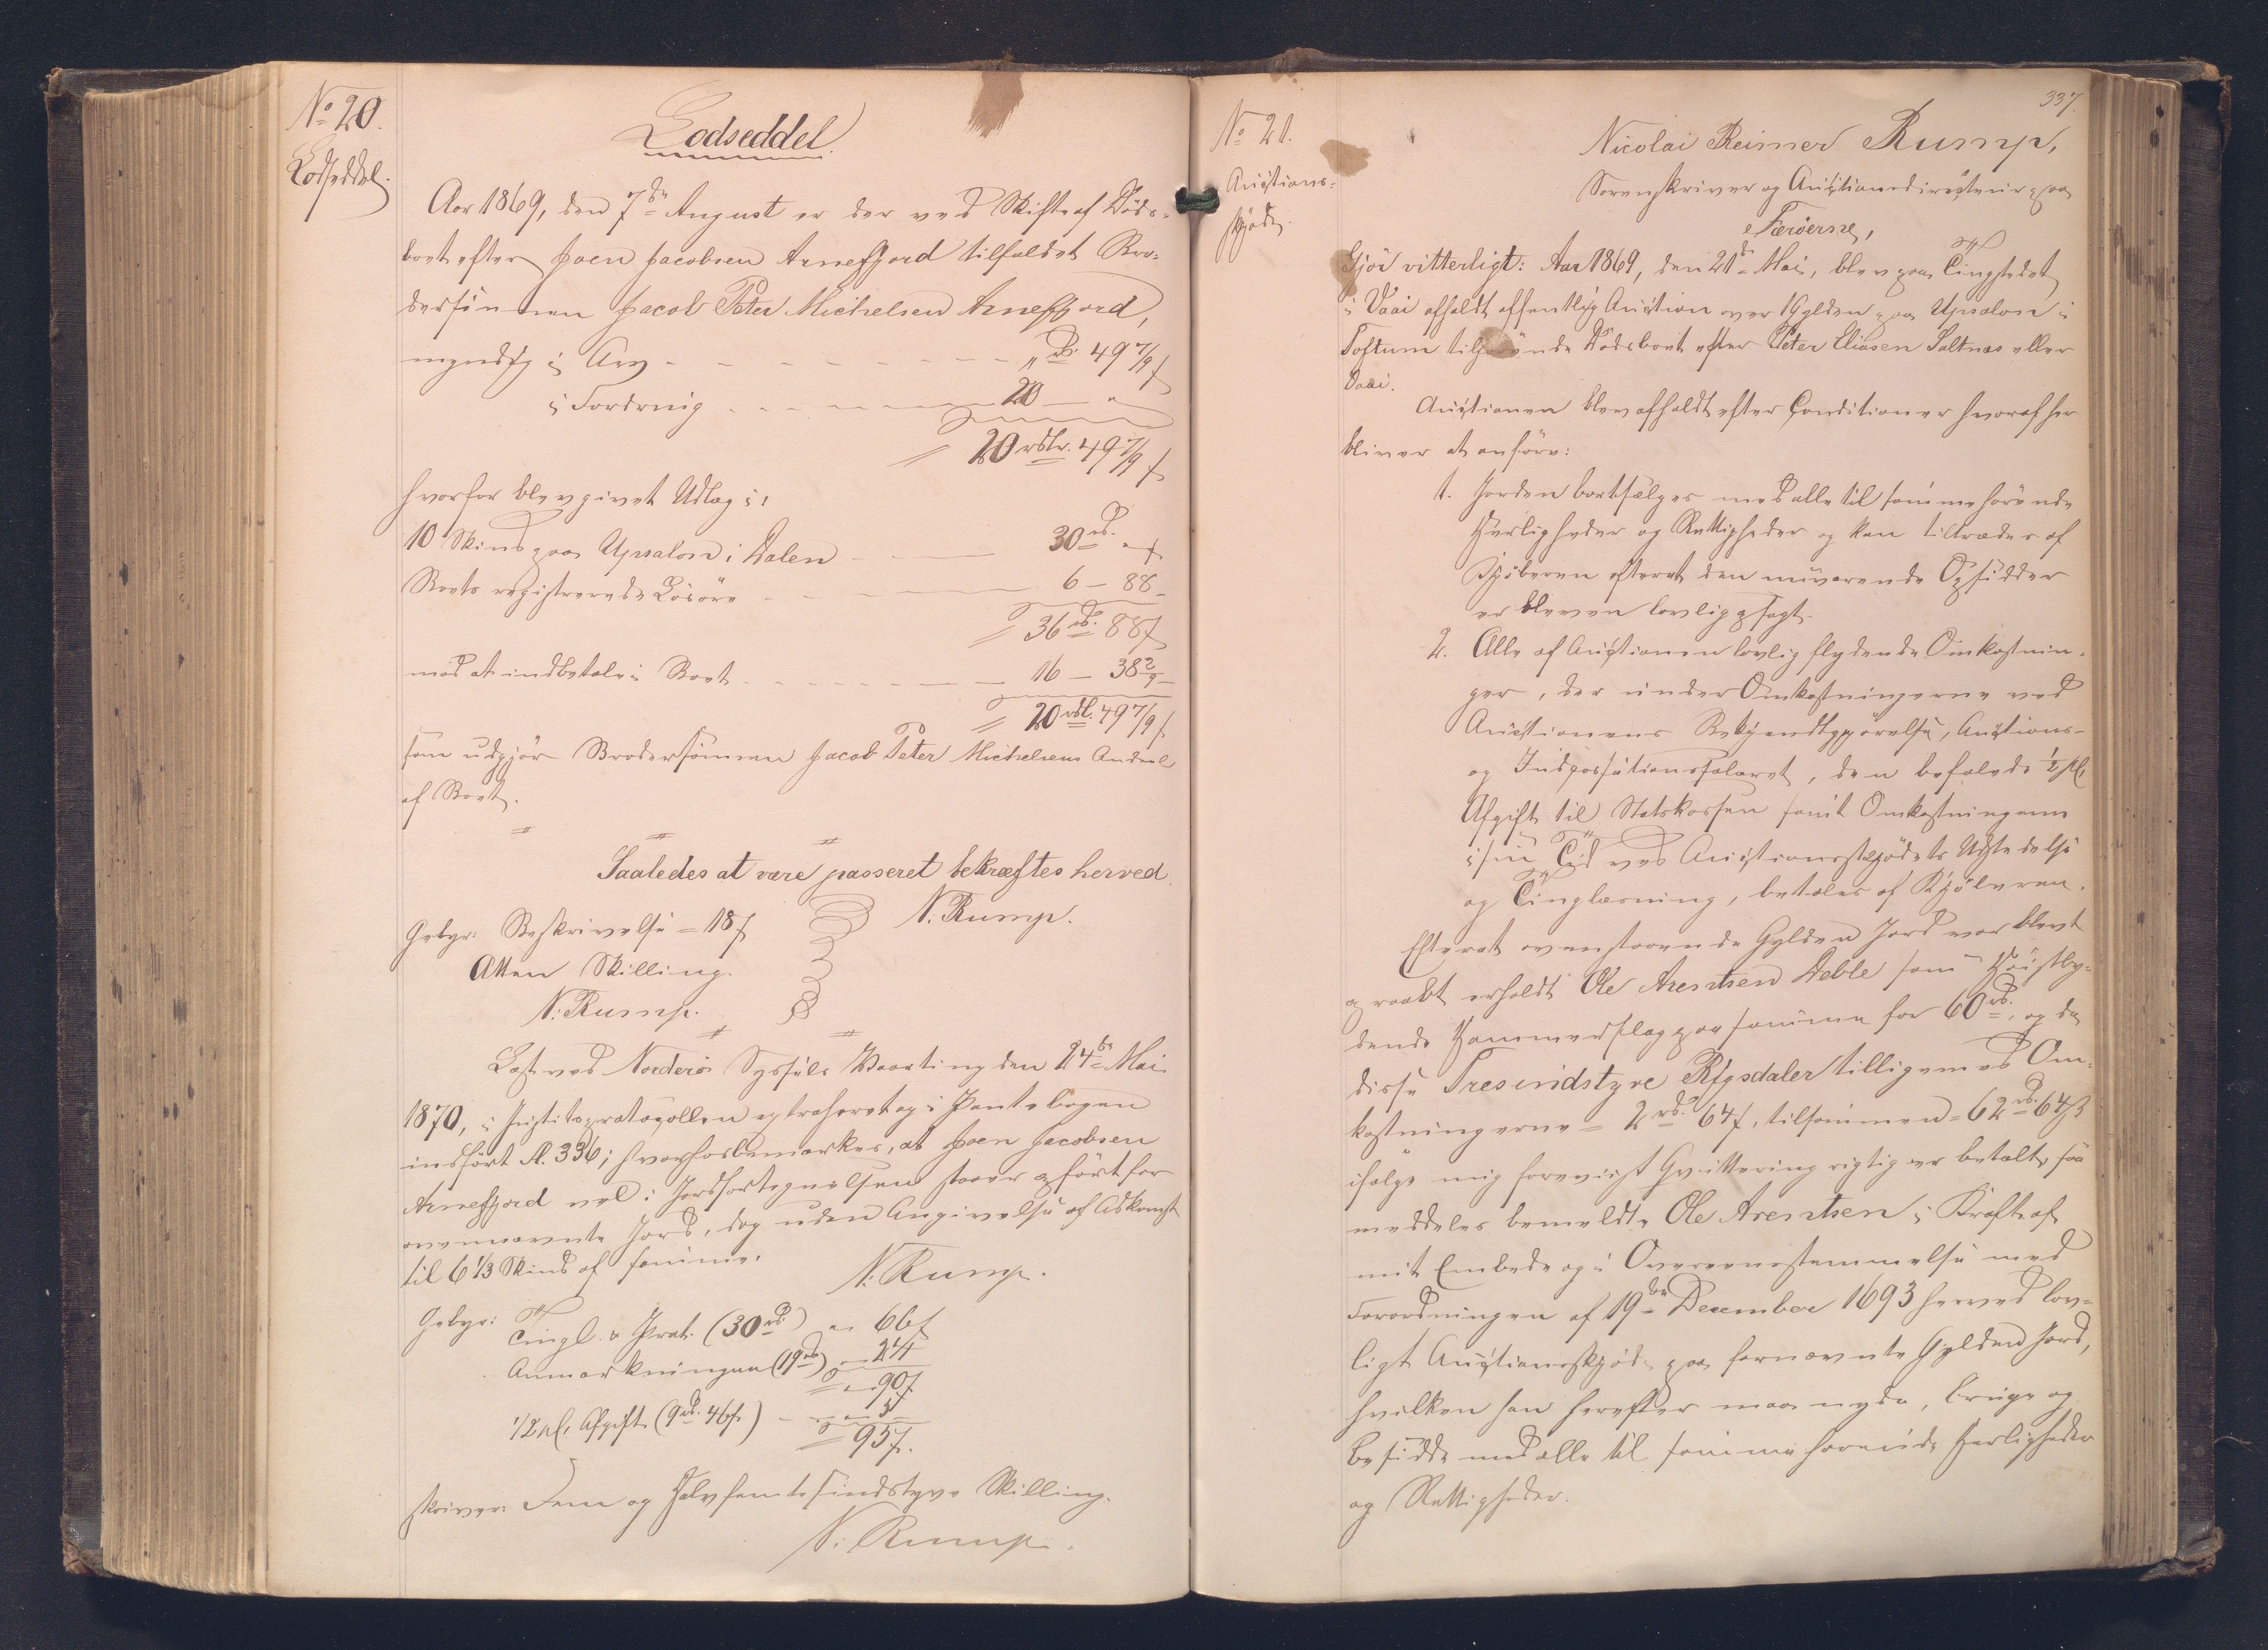 No 20.
Lodseddel.
Lodseddel
Aar 1869, den 7de August er der ved Skifte af Døds-
boet efter Joen Jacobsen Arnefjord tilfaldet Bro-
dersønnen Jacob Peter Michelsen Arnefjord,
myndig i Arv - - - - - - „ rd. 49 7/9 ß
i Fordring - - - - 20 — „
= 20 rdlr. 49 7/9 ß
hvorfor blev givet Udlæg i:
10 Skind paa Upsalen i Dalen — 30 rd. „ ß
Boets registrerede Løsøre - - 6 — 88 -
= 36 rd. 88 ß
mod at indbetale i Boet - - - - 16 — 38 2/9 -
= 20 rdl. 49 7/9 ß
som udgjør Brodersønnen Jacob Peter Michelsens Andeel
af Boet.
Saaledes at være passeret bekræftes herved.
N. Rump.
Gebyr: Beskrivelse = 18 ß
Atten Skilling.
N. Rump.
Læst ved Norderø Syssels Vaarting den 24de Mai
1870, i Justitsprotocollen extraheret og i Pantebogen
indført Fol. 336; hvorhos bemærkes, at Joen Jacobsen
Arnefjord vel i Jordfortegnelsen staaer opført for
ovennævnte Jord, dog uden Angivelse af Adkomst
til 6 1/3 Skind af samme.
N. Rump.
Gebyr: Tingl. & Prot. (30 rd.) „ 66 ß
Anmærkningen (19 rd.) „ 24
= „ 90 ß
1/2 pCt. Afgift (9 rd. 46 ß) - - „ 5 -
= 95 ß.
skriver: Fem og Halvfemtesindstyve Skilling.
N. Rump.
337.
No 21.
Auctions-
skjøde.
Nicolai Reimer Rump,
Sorenskriver og Auctionsdirecteur paa
Færøerne,
Gjør vitterligt: Aar 1869, den 21de Mai, blev paa Tingstedet
i Vaai afholdt offentlig Auction over 1 Gylden paa Upsalen i
Toftum tilhørende Dødsboet efter Peter Eliasen Saltnæs eller
Vaai.
Auctionen blev afholdt efter Conditioner hvoraf her
bliver at anføre:
1. Jorden bortsælges med alle til samme hørende
Herligheder og Rettigheder og kan tiltrædes af
Kjøberen efterat den nuværende Opsidder
er bleven lovlig opsagt.
2. Alle af Auctionen lovlig flydende Omkostnin-
ger, der under Omkostningerne ved
Auctionens Bekjendtgjørelse, Auctions-
og Indpossationssalairet, den befalede 1/2 pCt.
Afgift til Statskassen samt Omkostningerne
i sin Tid ved Auctionsskjødets Udstedelse
og Tinglæsning, betales af Kjøberen.
Efterat ovenstaaende Gylden Jord var blevet
opraabt erholdt Ole Arentsen Deble som Høistby-
dende Hammerslag paa samme for 60 rd., og da
disse Tresindstyve Rigsdaler tilligemed Om-
kostningerne = 2 rd. 64 ß, tilsammen = 62 rd. 64 ß
ifølge mig foreviist Qvittering rigtig er betalt, saa
meddeles bemeldte Ole Arentsen i Kraft af
mit Embede og i Overeensstemmelse med
Forordningen af 19de December 1693 herved lov-
ligt Auctionsskjøde paa fornævnte Gylden Jord,
hvilken han herefter maa nyde, bruge og
besidde med alle til samme hørende Herligheder
og Rettigheder.